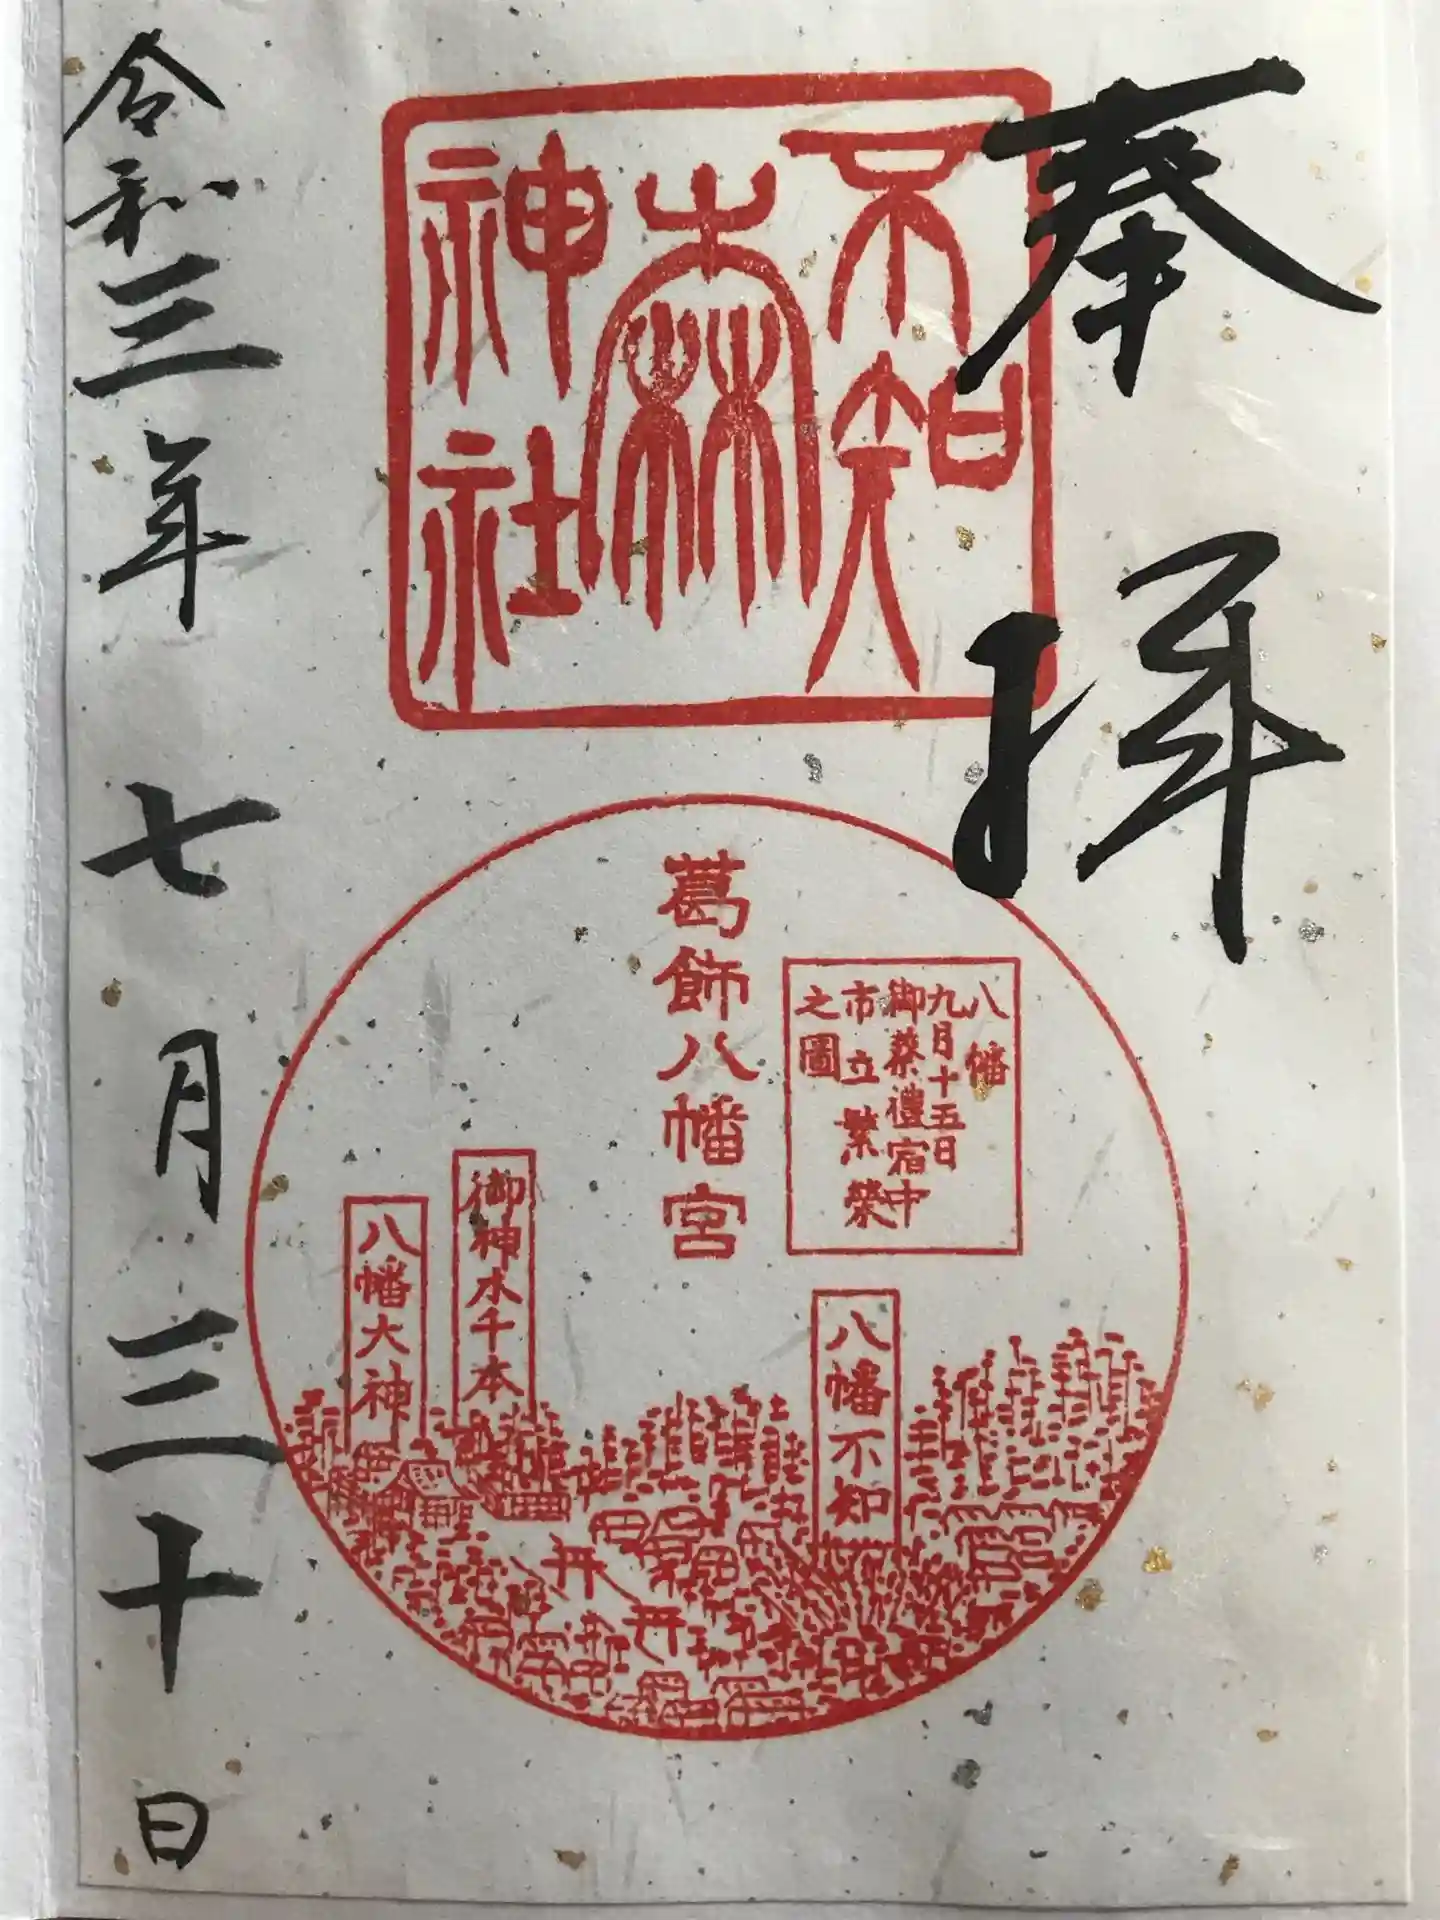 奉拝
不知
森
神社
葛飾八幡宮
八幡
九月十五日
御祭禮宿中
市立繁榮
之圖
八幡不知
御神水千本
八幡大神
令和三年七月三十日